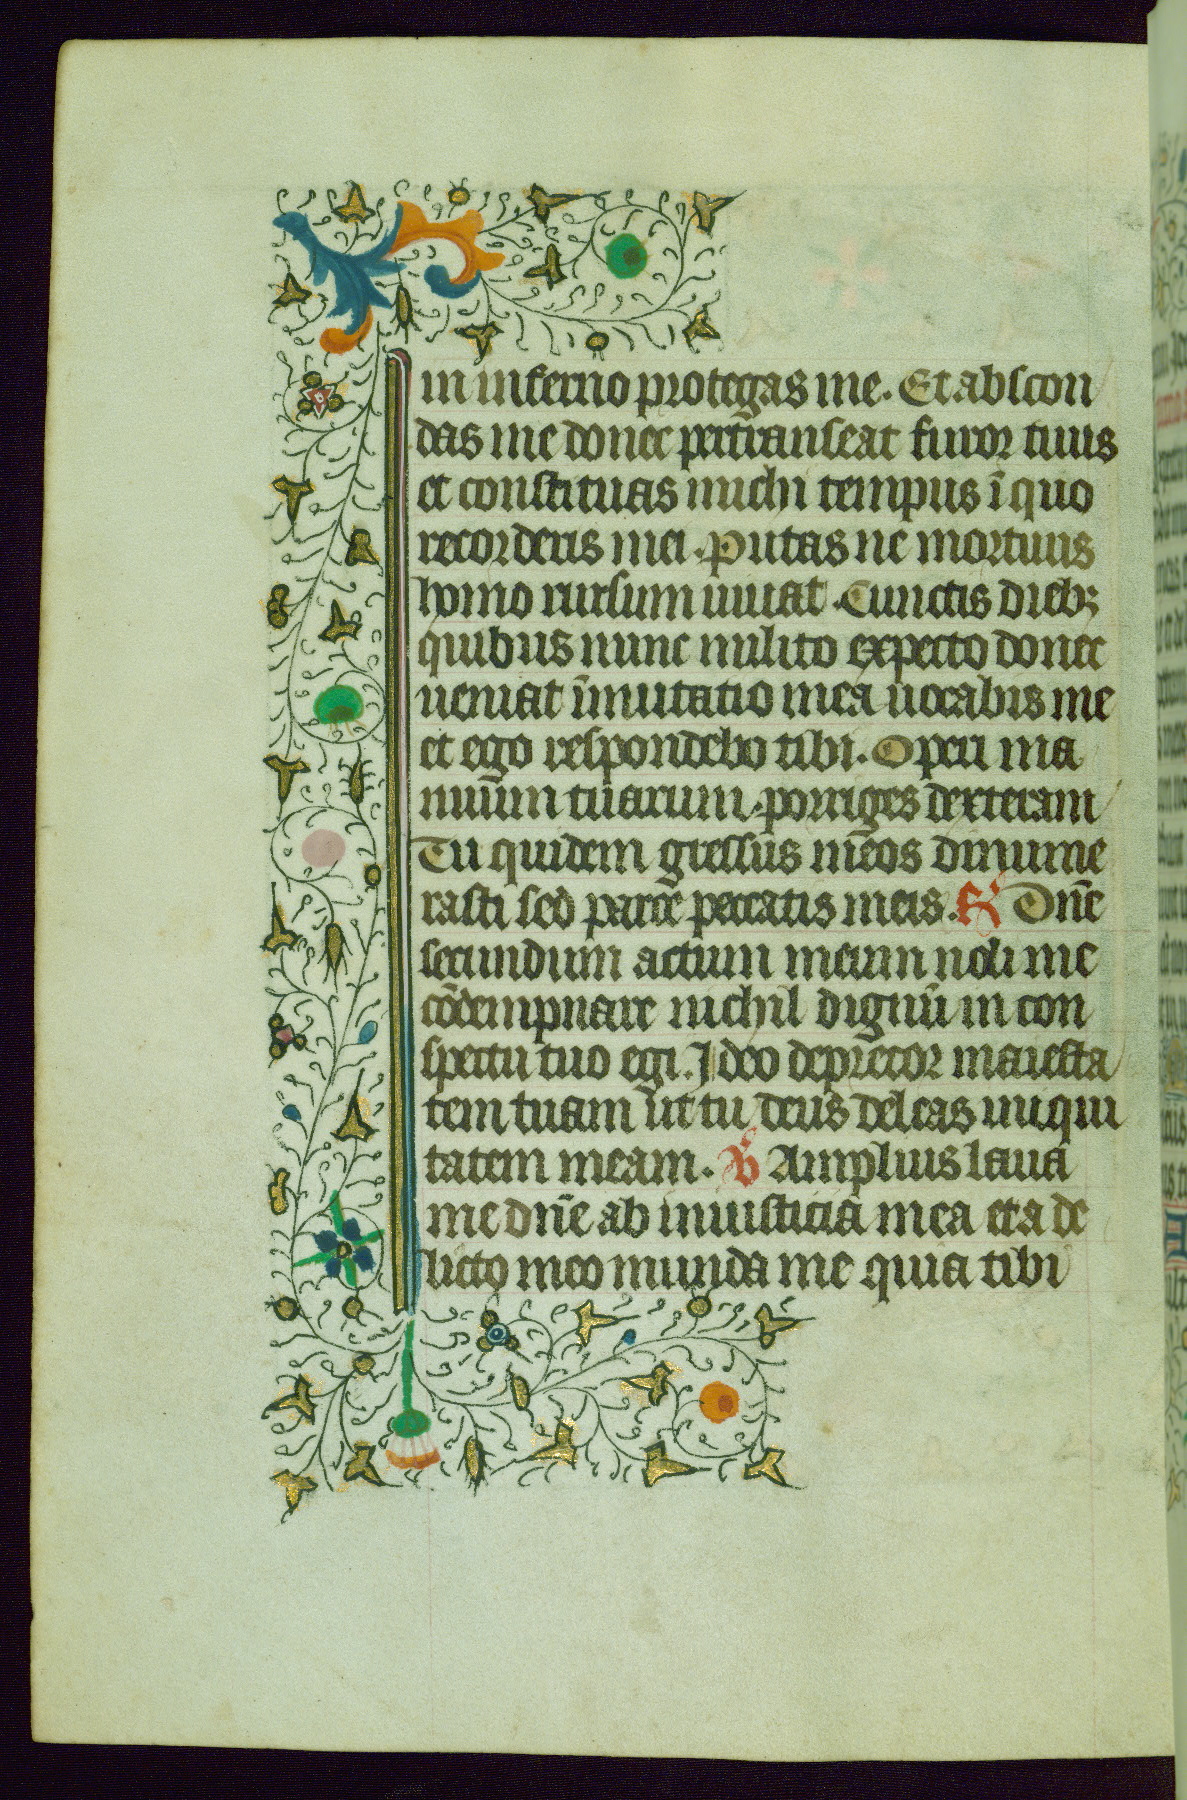 in inferno protegas me. Et abscon
das me donec pertranseat furor tuus
et constituas michi tempus ī quo
recorderis mei. Putas ne mortuus
homo rursum uiuat. Cunctis diebꝫ
quibus nunc milito expecto donec
ueniat īmutatio mea uocabis me
et ego respondebo tibi. Operi ma
nuum tuarum porriges dexteram
Tu quidem gressus meos dinume
rasti sed parce peccatis meis. R Dn̄e
secundum actum meum noli me
cōdempnare nichil dignū in con
spectu tuo egi. Ideo deprecor maiesta
tem tuam ut tu deus deleas iniqui
tatem meam. V Amplius laua
me dn̄e ab iniusticia mea et a de
licto meo munda me quia tibi